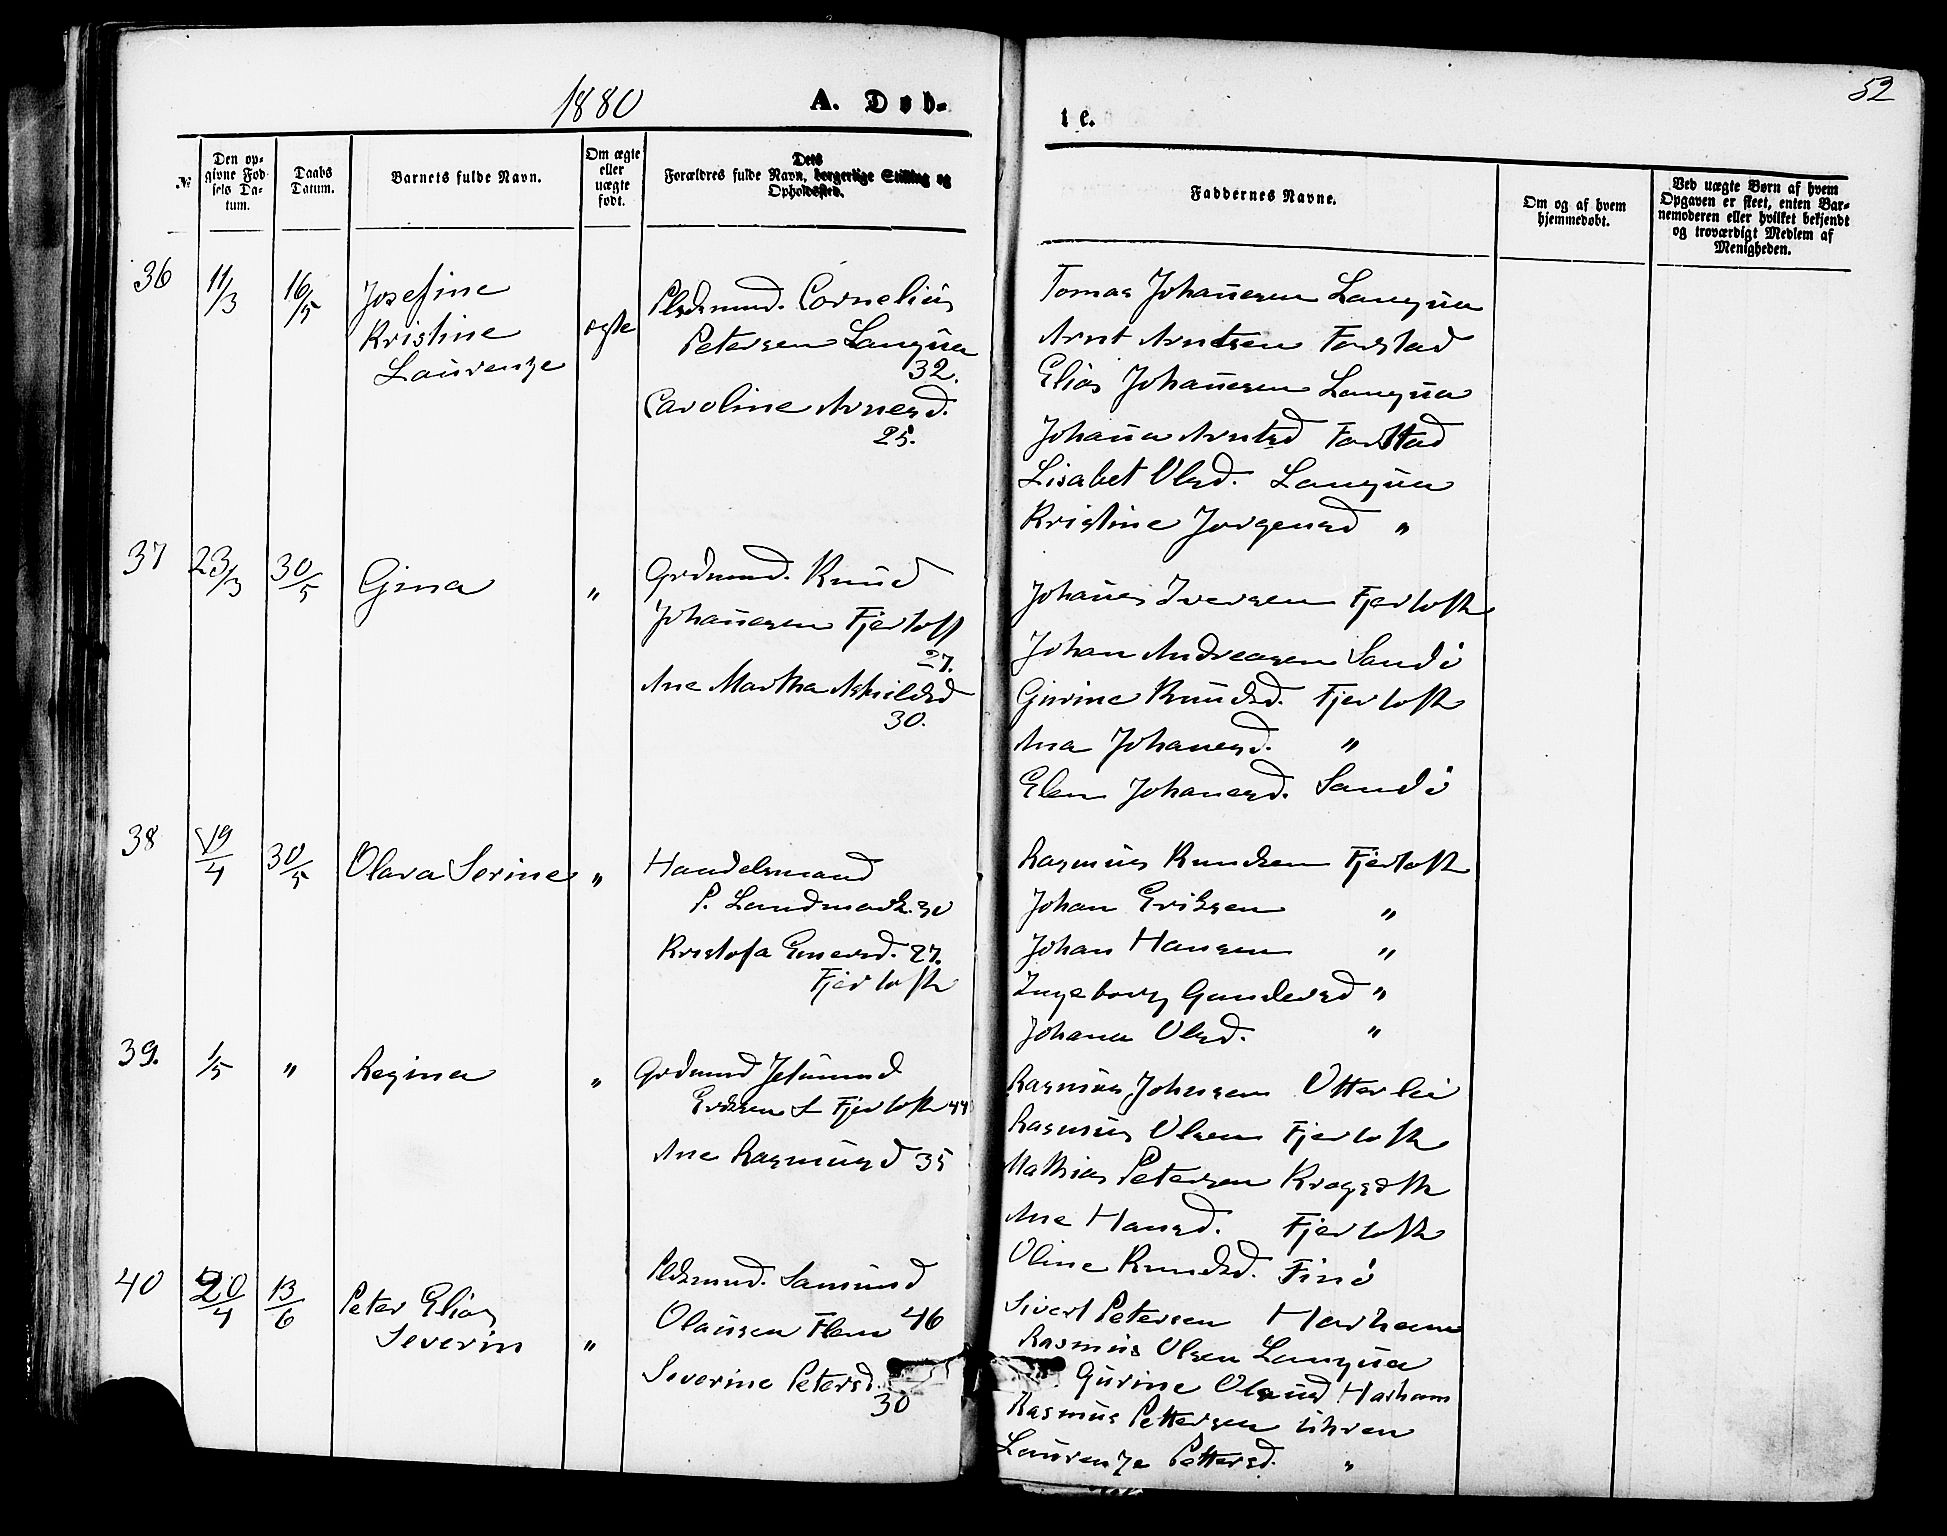 1880
A. Døb-
te.
52
№
Den op-
givne Fød
sels Da-
tum.
Daabs
Datum.
Barnets fulde Navn.
Om ægte
eller
uægte
født.
Dets
Forældres fulde Navn, borgerlige Stilling og
Opholdssted.
Faddernes Navne.
Om og af hvem
hjemmedøbt.
Ved uægte Børn af hvem
Opgaven er skeet, enten Bar-
nemoderen eller hvilket bekjendt
og troværdigt Medlem af
Menigheden.
36
11/3
16/5
Josefine
Kristine
Laurenze
ægte
Pldsmnd. Cornelius
Petersen Langua
32.
Caroline Arnesd.
25.
Tomas Johanesen Langua
Arnt Arntsen Farstad
Elias Johanesen Langua
Johana Arntsd Farstad
Lisabet Olsd. Langua
Kristine Jorgensd "
37
23/3
30/5
Gina
"
Grdmnd. Knud
Johanesen Fjertoft
27.
Ane Martha Askildsd
30.
Johanes Iversen Fjertoft
Johan Andreasen Sandö
Gurine Knudsd. Fjertoft
Ana Johanesd. "
Elen Johanesd. Sandö
38
19/4
30/5
Olava Serine
"
Handelsmand
P. Landmark 30
Kristofa Einersd. 27.
Fjertoft
Rasmus Knudsen Fjertoft
Johan Eriksen "
Johan Hansen "
Ingeborg Gundersd "
Johana Olsd. "
39.
1/5
"
Regina
"
Grdmnd Jetmund
Erdsen L Fjertoft 44
Ane Rasmusd 35
Rasmus Johnsen Otterlei
Rasmus Olsen Fjertoft
Mathias Petersen Krogsæth
Ane Hansd. Fjertoft
Oline Knudsd. Finö
40
20/4
13/6
Peter Elias
Severin
"
Pldsmnd. Samund
Olausen Flem 46
Severine Petersd.
30
Sivert Petersen Harham
Rasmus Olsen Langua
Gurine Olausd Harham
Rasmus Pettersen Uhren
Laurenze Pettersd. "